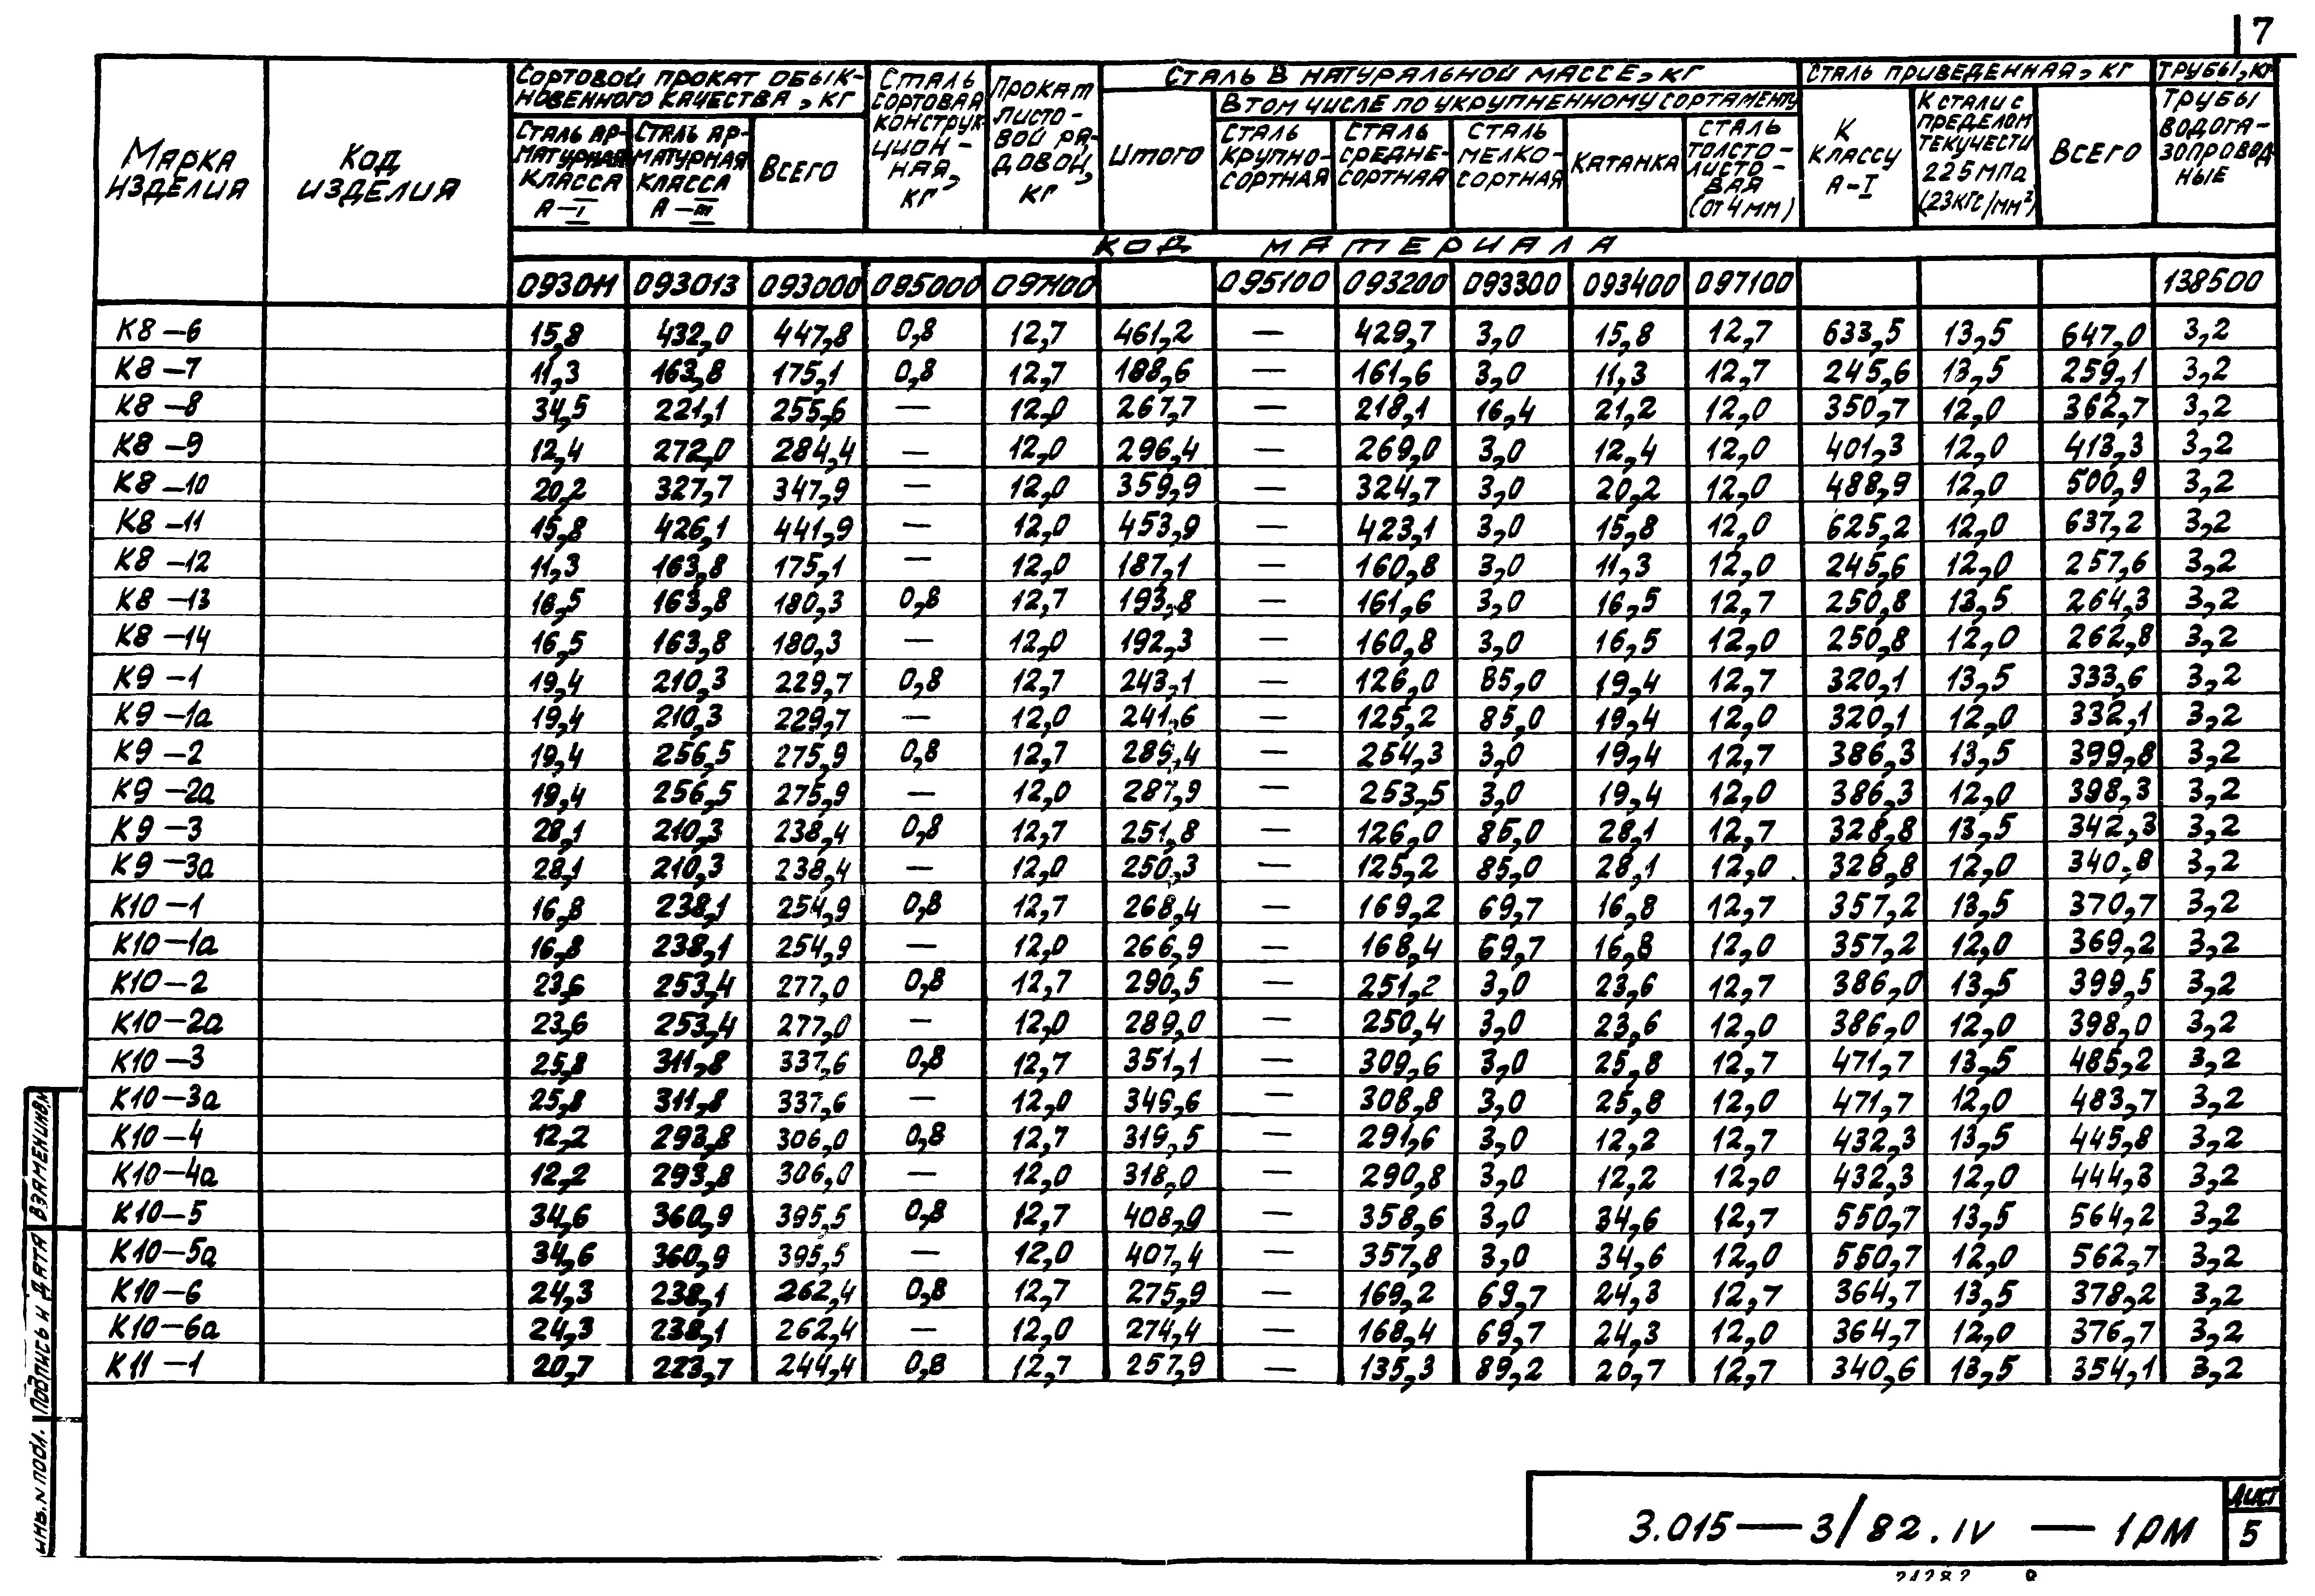 7
МАРКА ИЗДЕЛИЯ
КОД ИЗДЕЛИЯ
СОРТОВОЙ ПРОКАТ ОБЫК-
НОВЕННОГО КАЧЕСТВА, КГ
СТАЛЬ АР-
МАТУРНАЯ
КЛАССА
А-I
СТАЛЬ АР-
МАТУРНАЯ
КЛАССА
А-III
ВСЕГО
СТАЛЬ
СОРТОВАЯ
КОНСТРУК-
ЦИОН-
НАЯ,
КГ
ПРОКАТ
ЛИСТО-
ВОЙ РЯ-
ДОВОЙ,
КГ
СТАЛЬ В НАТУРАЛЬНОЙ МАССЕ, КГ
ИТОГО
В ТОМ ЧИСЛЕ ПО УКРУПНЕННОМУ СОРТАМЕНТУ
СТАЛЬ
КРУПНО-
СОРТНАЯ
СТАЛЬ
СРЕДНЕ-
СОРТНАЯ
СТАЛЬ
МЕЛКО-
СОРТНАЯ
КАТАНКА
СТАЛЬ
ТОЛСТО-
ЛИСТО-
ВАЯ
(ОТ 4 ММ)
СТАЛЬ ПРИВЕДЕННАЯ, КГ
К
КЛАССУ
А-I
К СТАЛИ С
ПРЕДЕЛОМ
ТЕКУЧЕСТИ
225 МПа
(23КГС/ММ²)
ВСЕГО
ТРУБЫ, КГ
ТРУБЫ
ВОДОГА-
ЗОПРОВОД-
НЫЕ
КОД МАТЕРИАЛА
093011 093013 093000 095000 097100 095100 093200 093300 093400 097100 138500
К8-6 15,8 432,0 447,8 0,8 12,7 461,2 — 429,7 3,0 15,8 12,7 633,5 13,5 647,0 3,2
К8-7 11,3 163,8 175,1 0,8 12,7 188,6 — 161,6 3,0 11,3 12,7 245,6 13,5 259,1 3,2
К8-8 34,5 221,1 255,6 — 12,0 267,7 — 218,1 16,4 21,2 12,0 350,7 12,0 362,7 3,2
К8-9 12,4 272,0 284,4 — 12,0 296,4 — 269,0 3,0 12,4 12,0 401,3 12,0 413,3 3,2
К8-10 20,2 327,7 347,9 — 12,0 359,9 — 324,7 3,0 20,2 12,0 488,9 12,0 500,9 3,2
К8-11 15,8 426,1 441,9 — 12,0 453,9 — 423,1 3,0 15,8 12,0 625,2 12,0 637,2 3,2
К8-12 11,3 163,8 175,1 — 12,0 187,1 — 160,8 3,0 11,3 12,0 245,6 12,0 257,6 3,2
К8-13 16,5 163,8 180,3 0,8 12,7 193,8 — 161,6 3,0 16,5 12,7 250,8 13,5 264,3 3,2
К8-14 16,5 163,8 180,3 — 12,0 192,3 — 160,8 3,0 16,5 12,0 250,8 12,0 262,8 3,2
К9-1 19,4 210,3 229,7 0,8 12,7 243,1 — 126,0 85,0 19,4 12,7 320,1 13,5 333,6 3,2
К9-1а 19,4 210,3 229,7 — 12,0 241,6 — 125,2 85,0 19,4 12,0 320,1 12,0 332,1 3,2
К9-2 19,4 256,5 275,9 0,8 12,7 289,4 — 254,3 3,0 19,4 12,7 386,3 13,5 399,8 3,2
К9-2а 19,4 256,5 275,9 — 12,0 287,9 — 253,5 3,0 19,4 12,0 386,3 12,0 398,3 3,2
К9-3 28,1 210,3 238,4 0,8 12,7 251,8 — 126,0 85,0 28,1 12,7 328,8 13,5 342,3 3,2
К9-3а 28,1 210,3 238,4 — 12,0 250,3 — 125,2 85,0 28,1 12,0 328,8 12,0 340,8 3,2
К10-1 16,8 238,1 254,9 0,8 12,7 268,4 — 169,2 69,7 16,8 12,7 357,2 13,5 370,7 3,2
К10-1а 16,8 238,1 254,9 — 12,0 266,9 — 168,4 69,7 16,8 12,0 357,2 12,0 369,2 3,2
К10-2 23,6 253,4 277,0 0,8 12,7 290,5 — 251,2 3,0 23,6 12,7 386,0 13,5 399,5 3,2
К10-2а 23,6 253,4 277,0 — 12,0 289,0 — 250,4 3,0 23,6 12,0 386,0 12,0 398,0 3,2
К10-3 25,8 311,8 337,6 0,8 12,7 351,1 — 309,6 3,0 25,8 12,7 471,7 13,5 485,2 3,2
К10-3а 25,8 311,8 337,6 — 12,0 349,6 — 308,8 3,0 25,8 12,0 471,7 12,0 483,7 3,2
К10-4 12,2 293,8 306,0 0,8 12,7 319,5 — 291,6 3,0 12,2 12,7 432,3 13,5 445,8 3,2
К10-4а 12,2 293,8 306,0 — 12,0 318,0 — 290,8 3,0 12,2 12,0 432,3 12,0 444,3 3,2
К10-5 34,6 360,9 395,5 0,8 12,7 408,9 — 358,6 3,0 34,6 12,7 550,7 13,5 564,2 3,2
К10-5а 34,6 360,9 395,5 — 12,0 407,4 — 357,8 3,0 34,6 12,0 550,7 12,0 562,7 3,2
К10-6 24,3 238,1 262,4 0,8 12,7 275,9 — 169,2 69,7 24,3 12,7 364,7 13,5 378,2 3,2
К10-6а 24,3 238,1 262,4 — 12,0 274,4 — 168,4 69,7 24,3 12,0 364,7 12,0 376,7 3,2
К11-1 20,7 223,7 244,4 0,8 12,7 257,9 — 135,3 89,2 20,7 12,7 340,6 13,5 354,1 3,2
ИНВ. N ПОДЛ. ПОДПИСЬ И ДАТА ВЗАМЕН ИНВ. N
3.015 — 3/82. IV — 1РМ
ЛИСТ
5